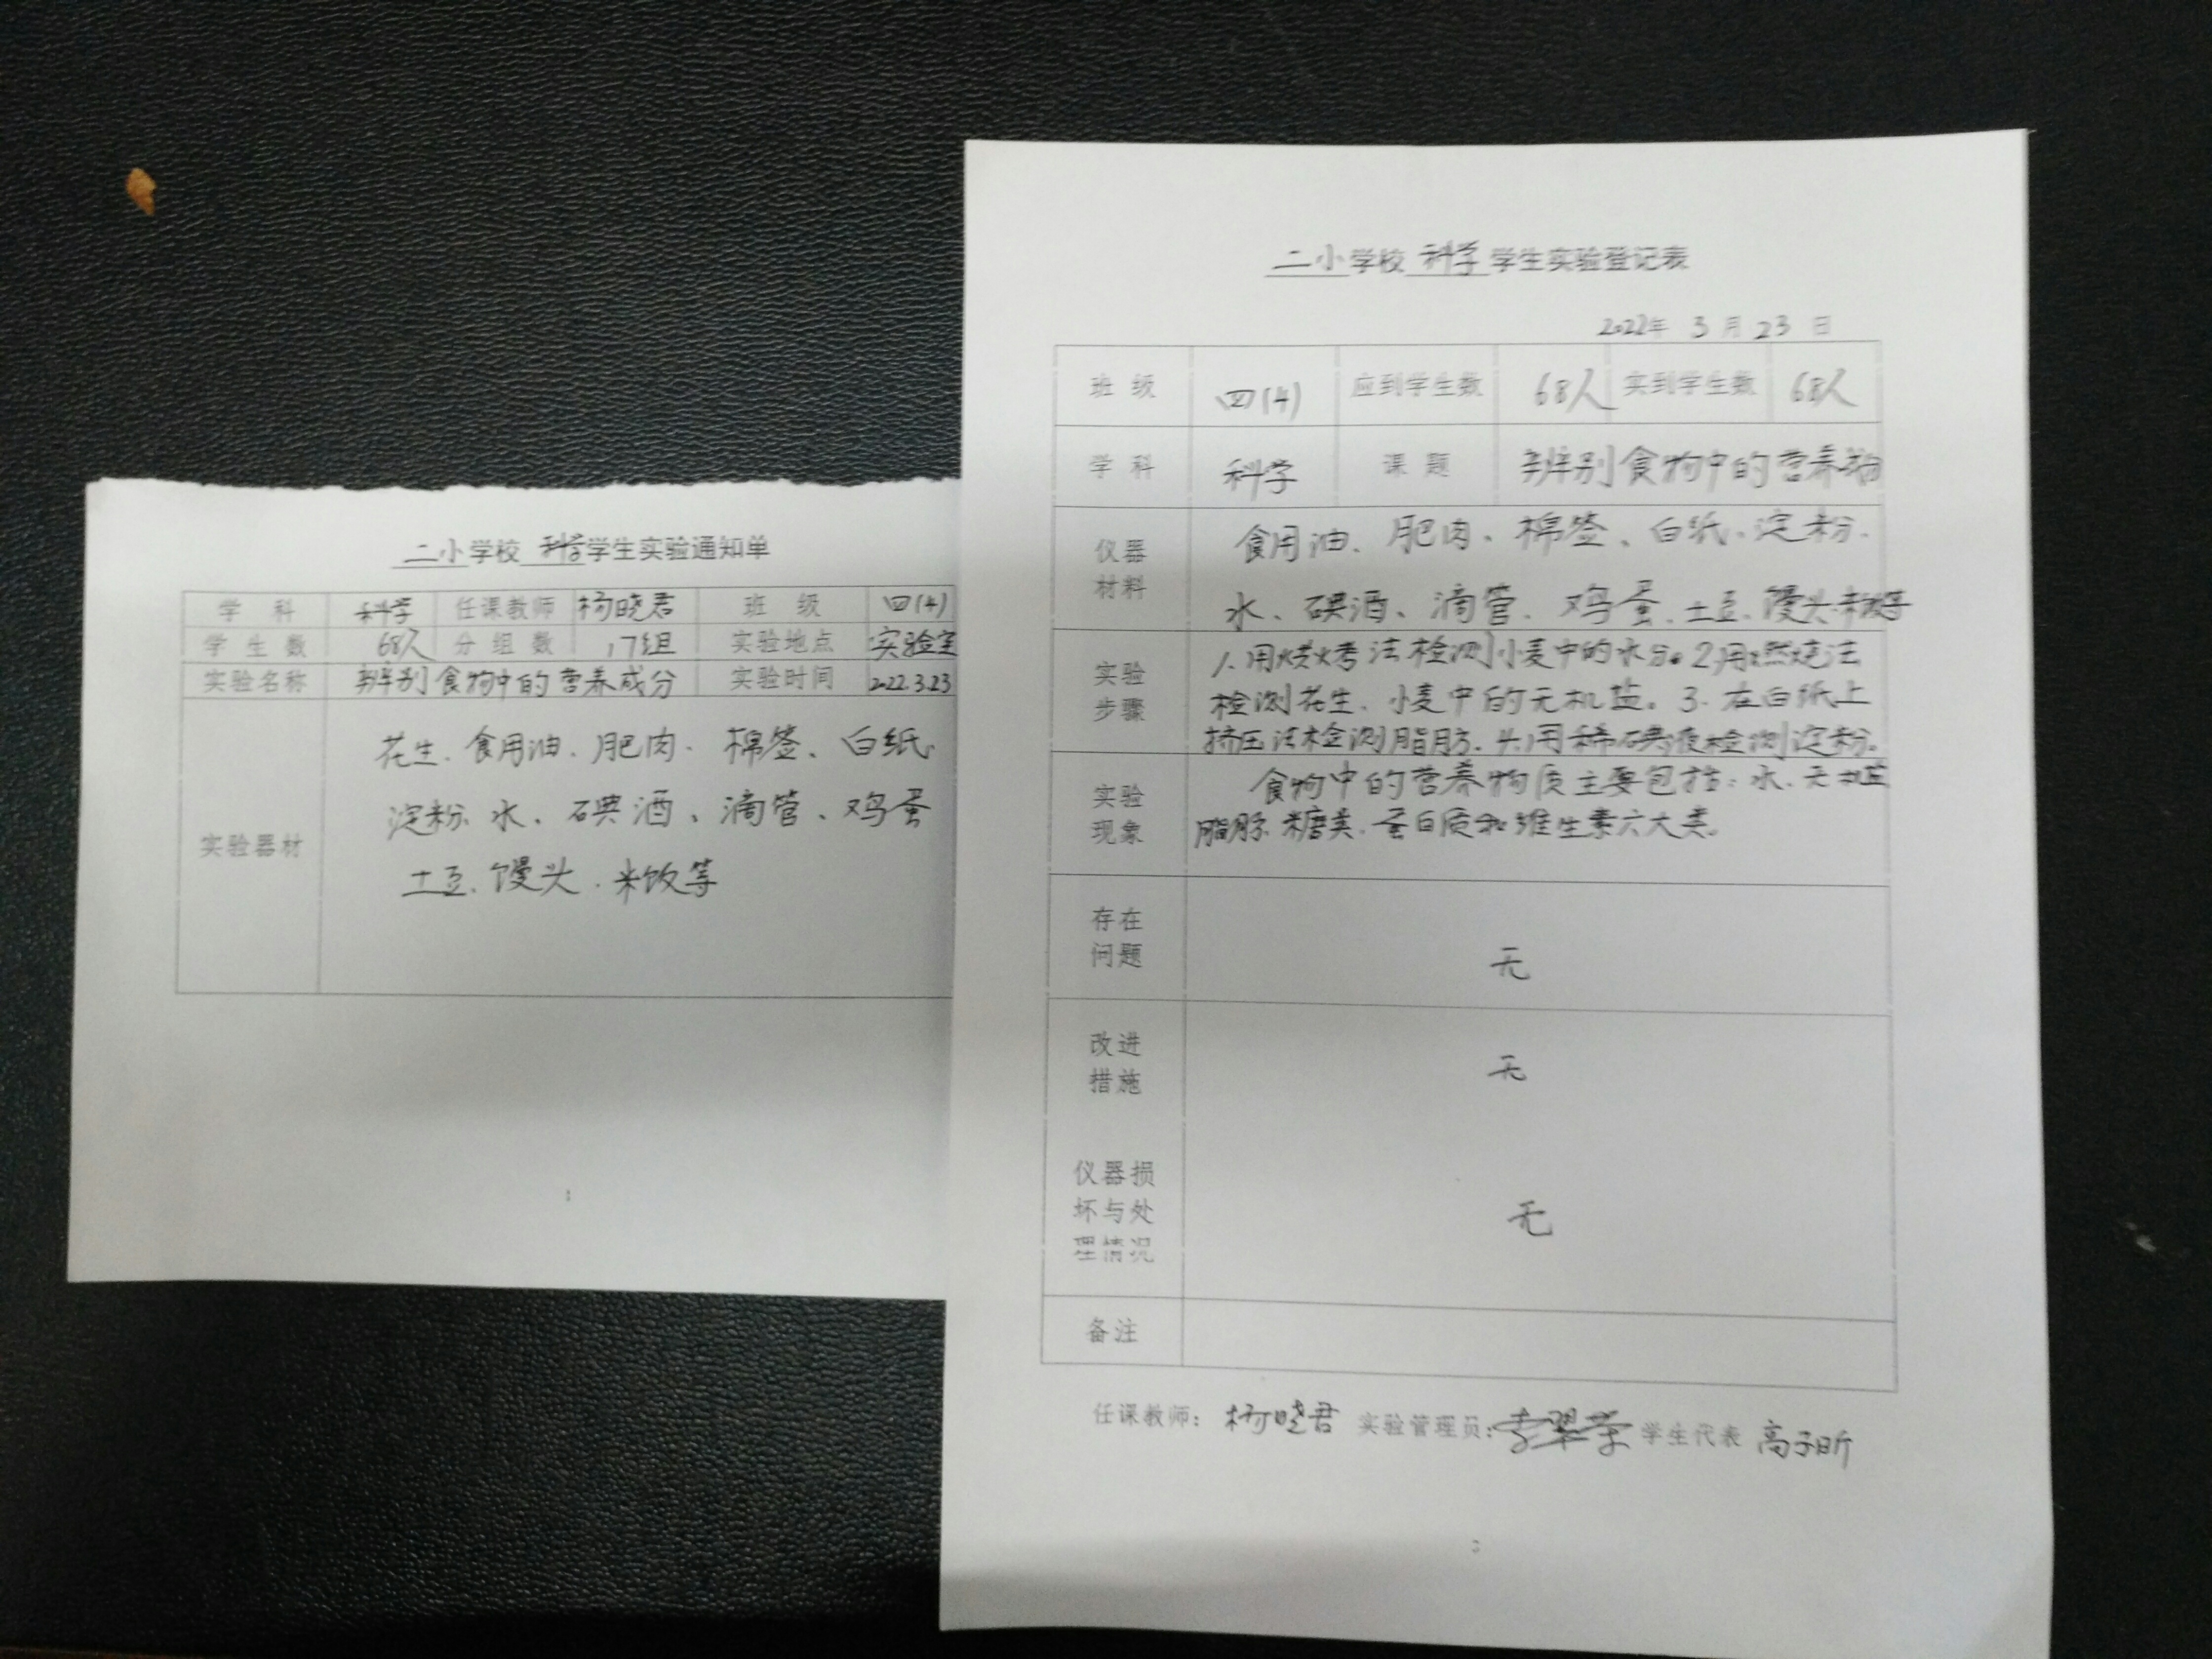 二小学校 科学学生实验通知单
学 科 科学 任课教师 杨晓君 班 级 四(4)
学 生 数 68人 分 组 数 17组 实验地点 实验室
实验名称 辨别食物中的营养成分 实验时间 2022.3.23
实验器材
花生、食用油、肥肉、棉签、白纸、
淀粉、水、碘酒、滴管、鸡蛋
土豆、馒头、米饭等
二小学校 科学 学生实验登记表
2022年 3 月 23 日
班 级 四(4) 应到学生数 68人 实到学生数 68人
学 科 科学 课 题 辨别食物中的营养物
仪器
材料
食用油、肥肉、棉签、白纸、淀粉、
水、碘酒、滴管、鸡蛋、土豆、馒头、米饭等
实验
步骤
1、用烘烤法检测小麦中的水分。2、用燃烧法
检测花生、小麦中的无机盐。3、在白纸上
挤压法检测脂肪。4、用稀碘液检测淀粉。
实验
现象
食物中的营养物质主要包括:水、无机盐
脂肪、糖类、蛋白质和维生素六大类。
存在
问题
无
改进
措施
无
仪器损
坏与处
理情况
无
备注
任课教师: 杨晓君 实验管理员: 李翠荣 学生代表 高子昕